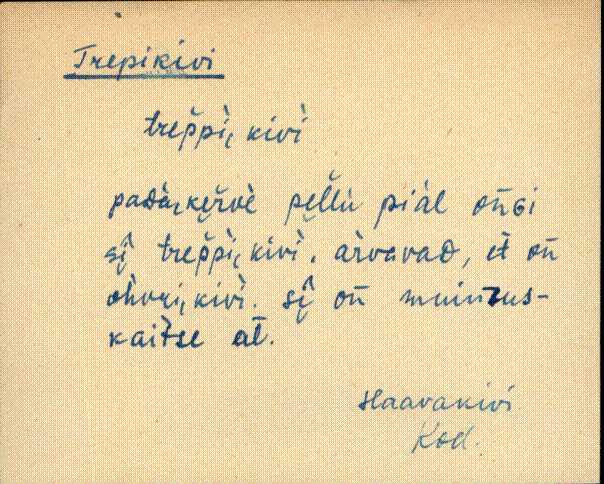 Trepikivi
trep̆pì, kivì
padà, kĕrvè pĕl̆lù piál on̄Gi
sī̬ trep̆pì, kivì. àrvavaD, et̄ on̄
ohvri, kivì. sī̬ on̄ muinsus-
kaitse al̄.
Haavakivi
Kod.